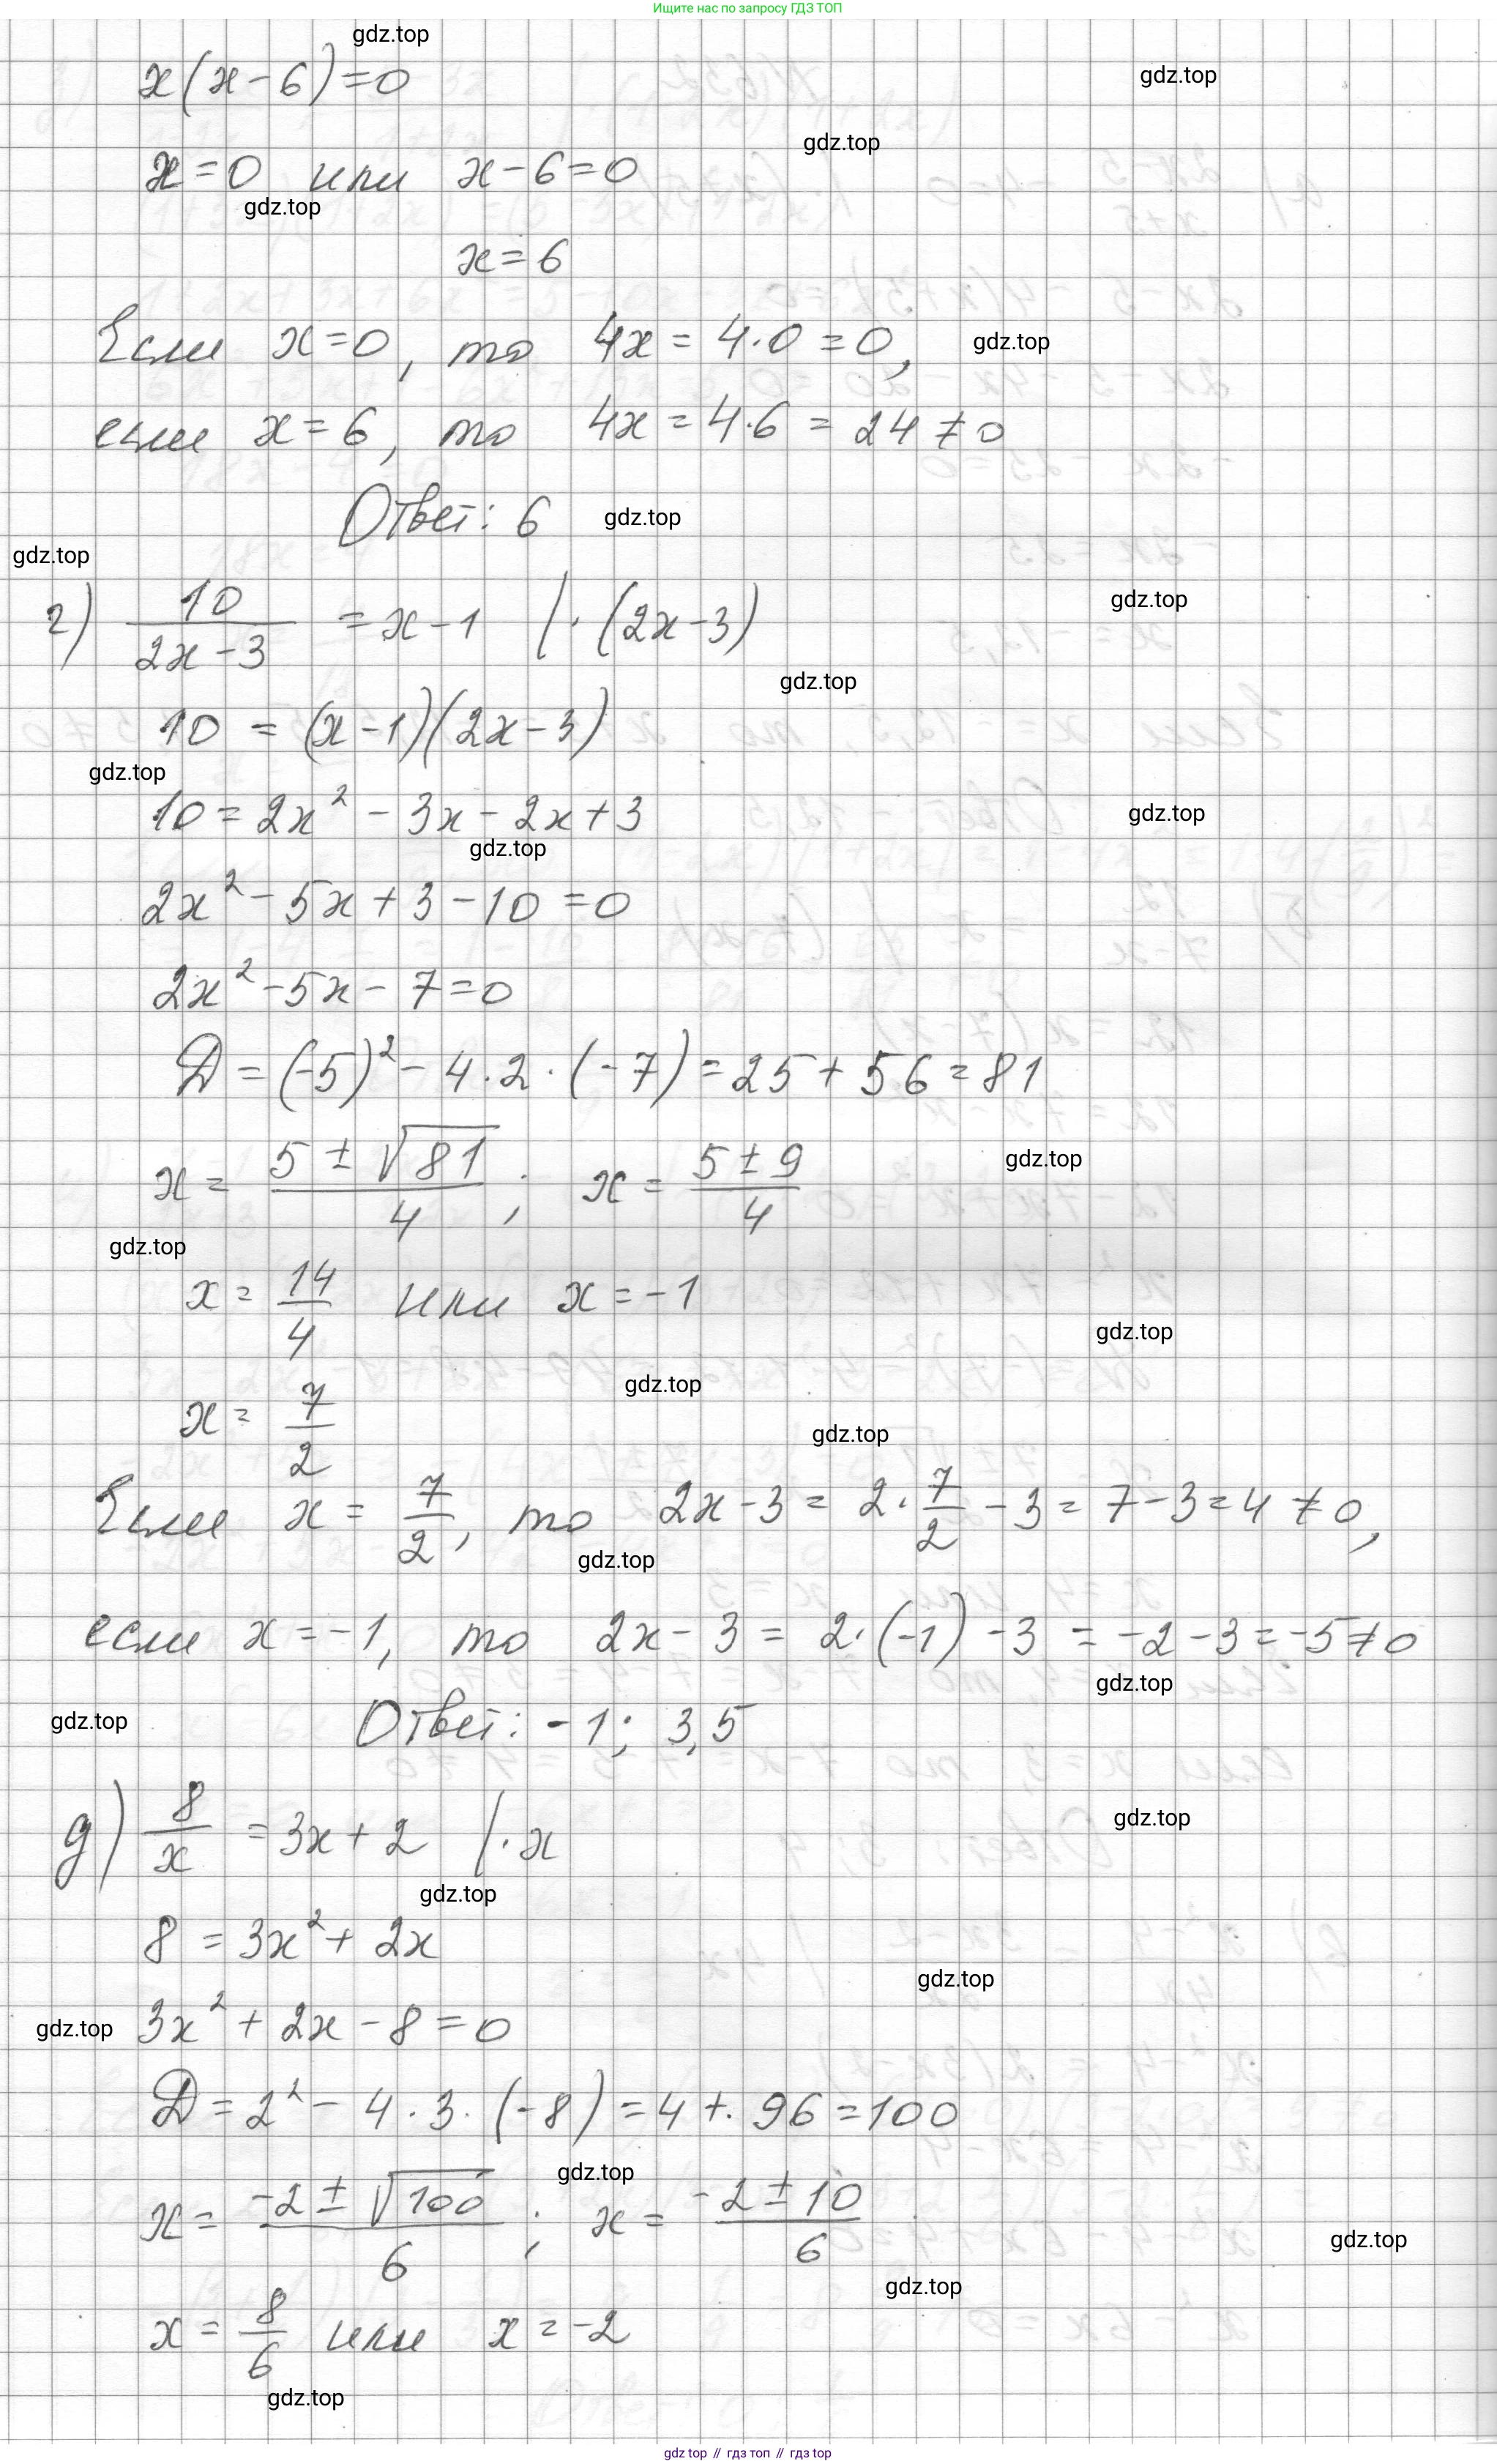 Ищите нас по запросу ГДЗ ТОП
gdz.top
x(x-6)=0
gdz.top
gdz.top
x=0 или x-6=0
gdz.top
x=6
Если x=0, то 4x=4·0=0,
gdz.top
если x=6, то 4x=4·6=24≠0
Ответ: 6
gdz.top
gdz.top
г) 10/(2x-3) =x-1 |·(2x-3)
gdz.top
gdz.top
10=(x-1)(2x-3)
gdz.top
10=2x²-3x-2x+3
gdz.top
gdz.top
2x²-5x+3-10=0
2x²-5x-7=0
D=(-5)²-4·2·(-7)=25+56=81
x=(5±√81)/4; x=(5±9)/4
gdz.top
gdz.top
x=14/4 или x=-1
gdz.top
gdz.top
x=7/2
gdz.top
Если x=7/2, то 2x-3=2·7/2-3=7-3=4≠0,
gdz.top
если x=-1, то 2x-3=2·(-1)-3=-2-3=-5≠0
gdz.top
gdz.top
Ответ: -1; 3,5
д) 8/x=3x+2 |·x
gdz.top
gdz.top
8=3x²+2x
gdz.top
gdz.top
3x²+2x-8=0
D=2²-4·3·(-8)=4+·96=100
gdz.top
x=(-2±√100)/6; x=(-2±10)/6
gdz.top
gdz.top
x=8/6 или x=-2
gdz.top
gdz top // гдз топ // gdz top